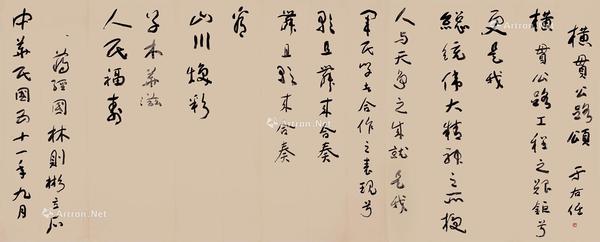 橫貫公路頌 于右任
橫貫公路工程之艱鉅兮
更是我
總統偉大精神之所極
人与天爭之成就是我
軍民學生合作之表現兮
歌且舞來合奏
舞且歌來合奏
山川煥彩
草木華滋
人民福壽
蔣經國 林則彬立石
中華民國五十一年九月
Artron.Net
Artron.Net
Artron.Net
Artron.Net